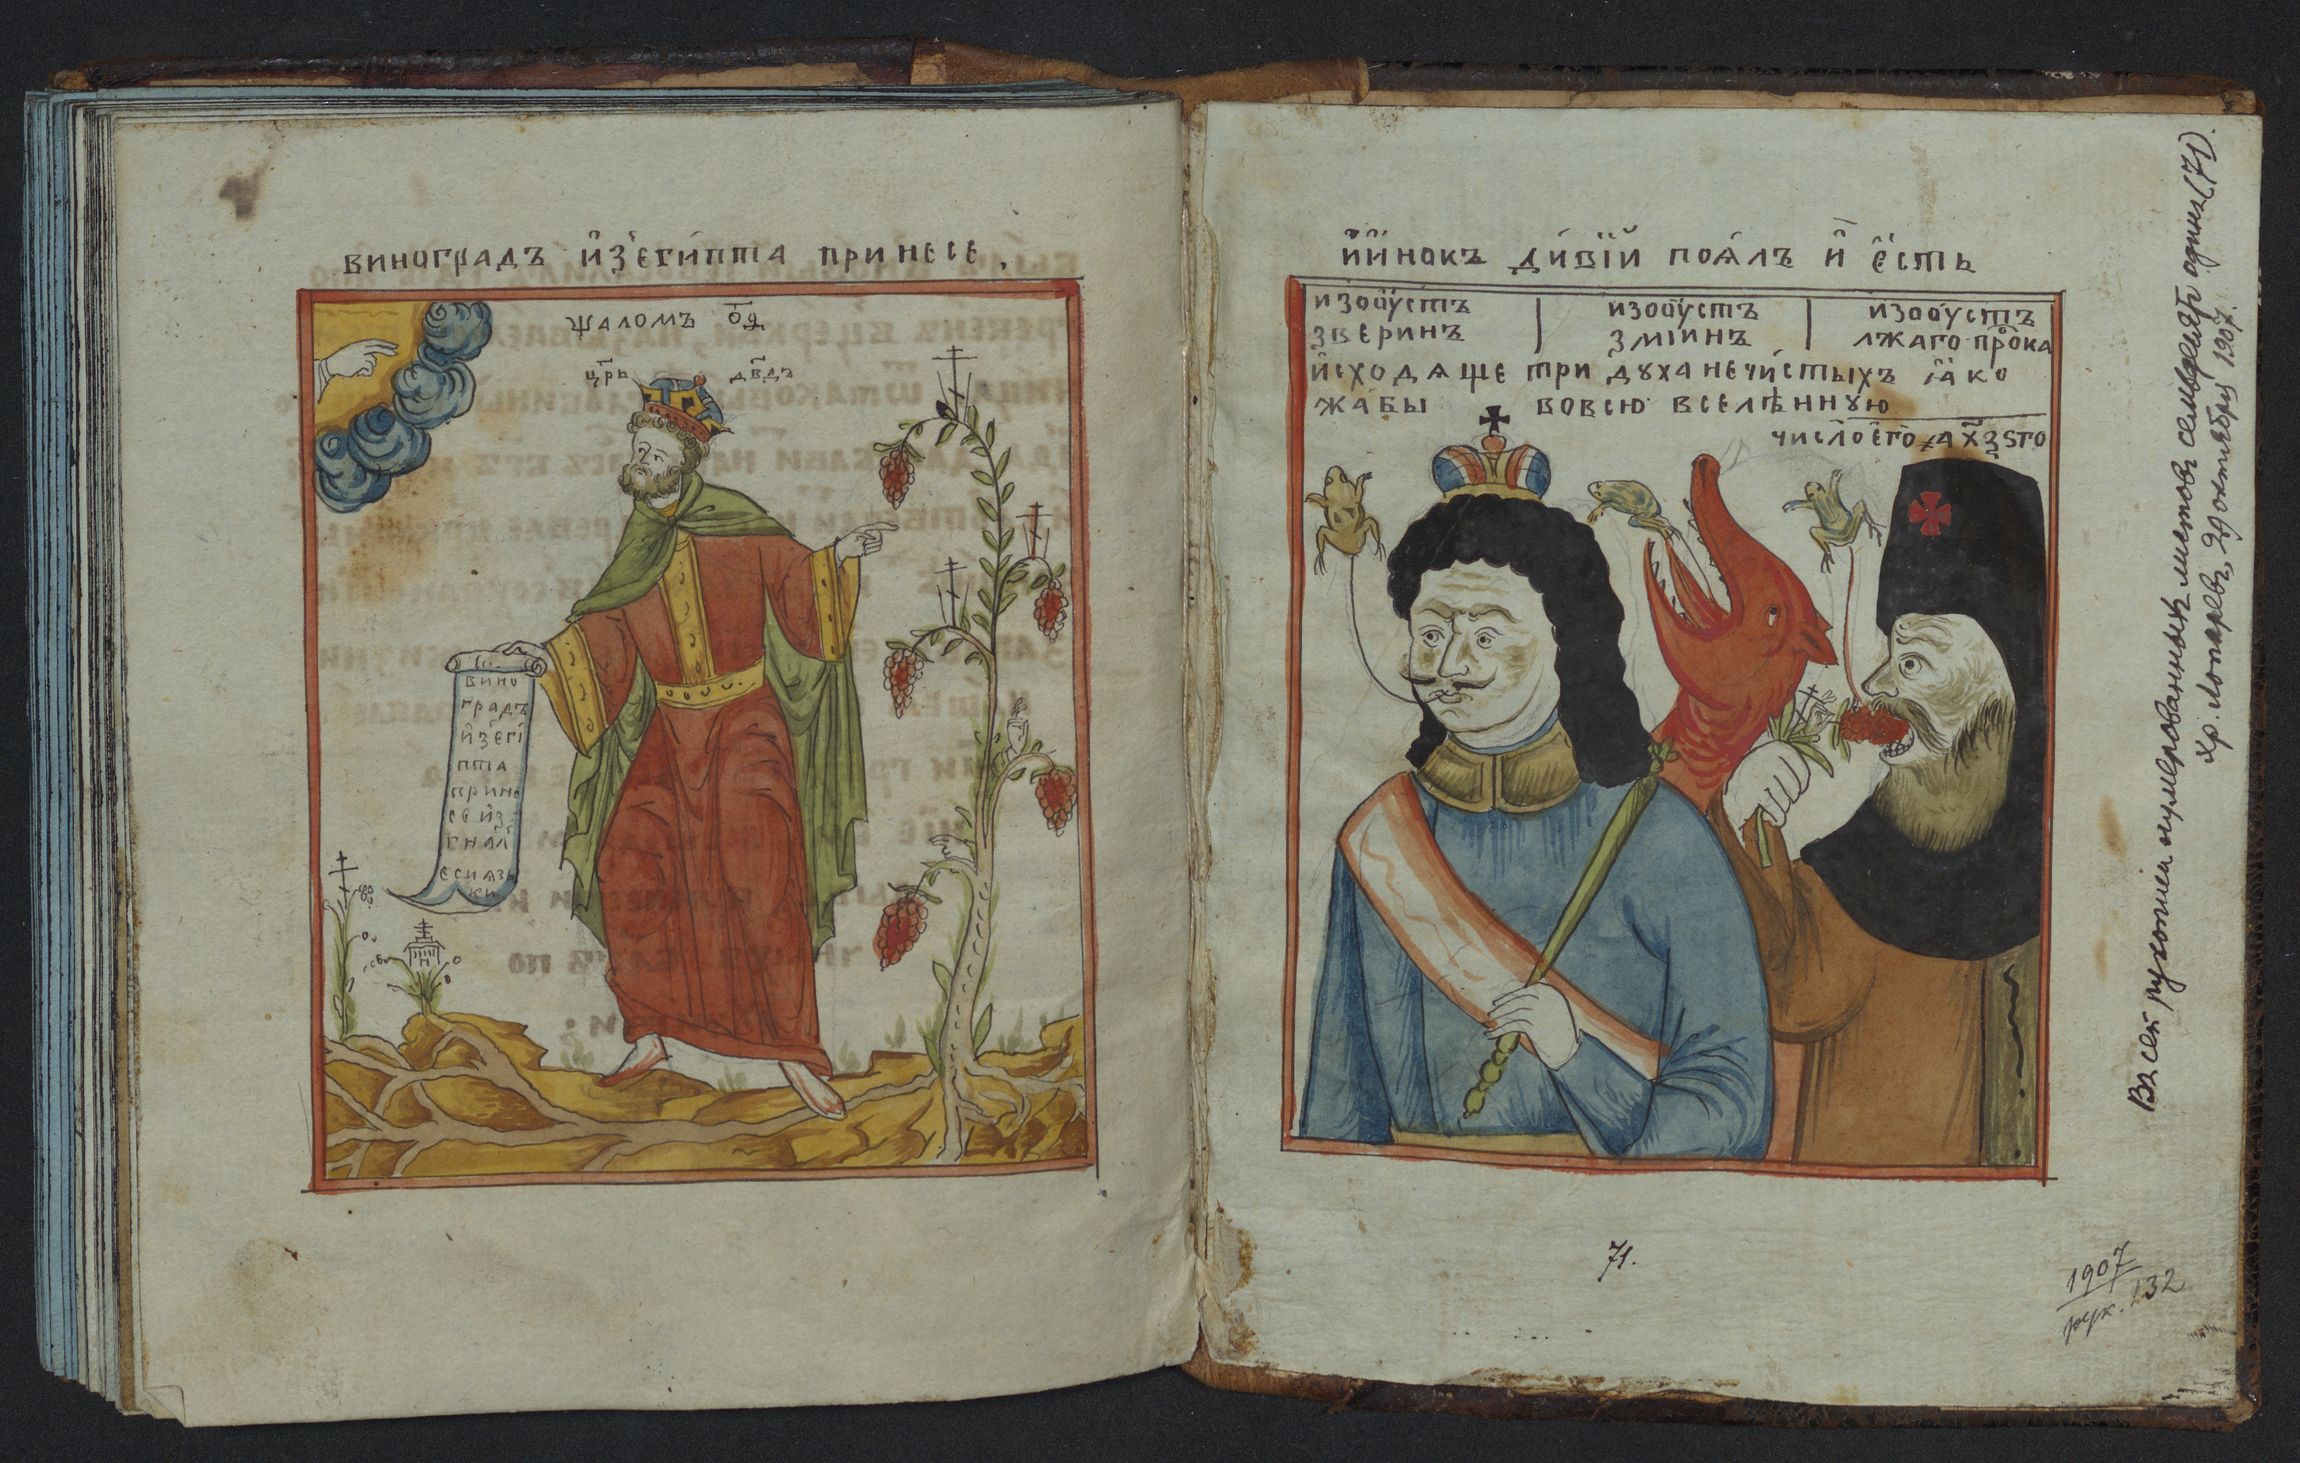 виноградъ и҆з̾еги́пта принесе.
ѱаломъ о҃ѳ
цр҃ь дв҃дъ
вино
градъ
и҆з̾еги
пта
прине
се и҆з
гнал
еси язы
ки
и҆и́нокъ ди́вїй поя́лъ и҆ є҆сть
изоу҆стъ
зверинъ
изоу҆стъ
змїинъ
изоу҆стъ
лжаго прⷪ҇ка
и҆сходяще три духа нечи́стыхъ ꙗ҆ко
жа́бы вовсю вселѣнную
число є҆го҆ ҂а҃хѯѕго
Въ сей рукописи нумерованныхъ листовъ семьдесятъ одинъ (71).
Хр. Лопаревъ, 29 октября 1907.
71.
1907
рук. 132